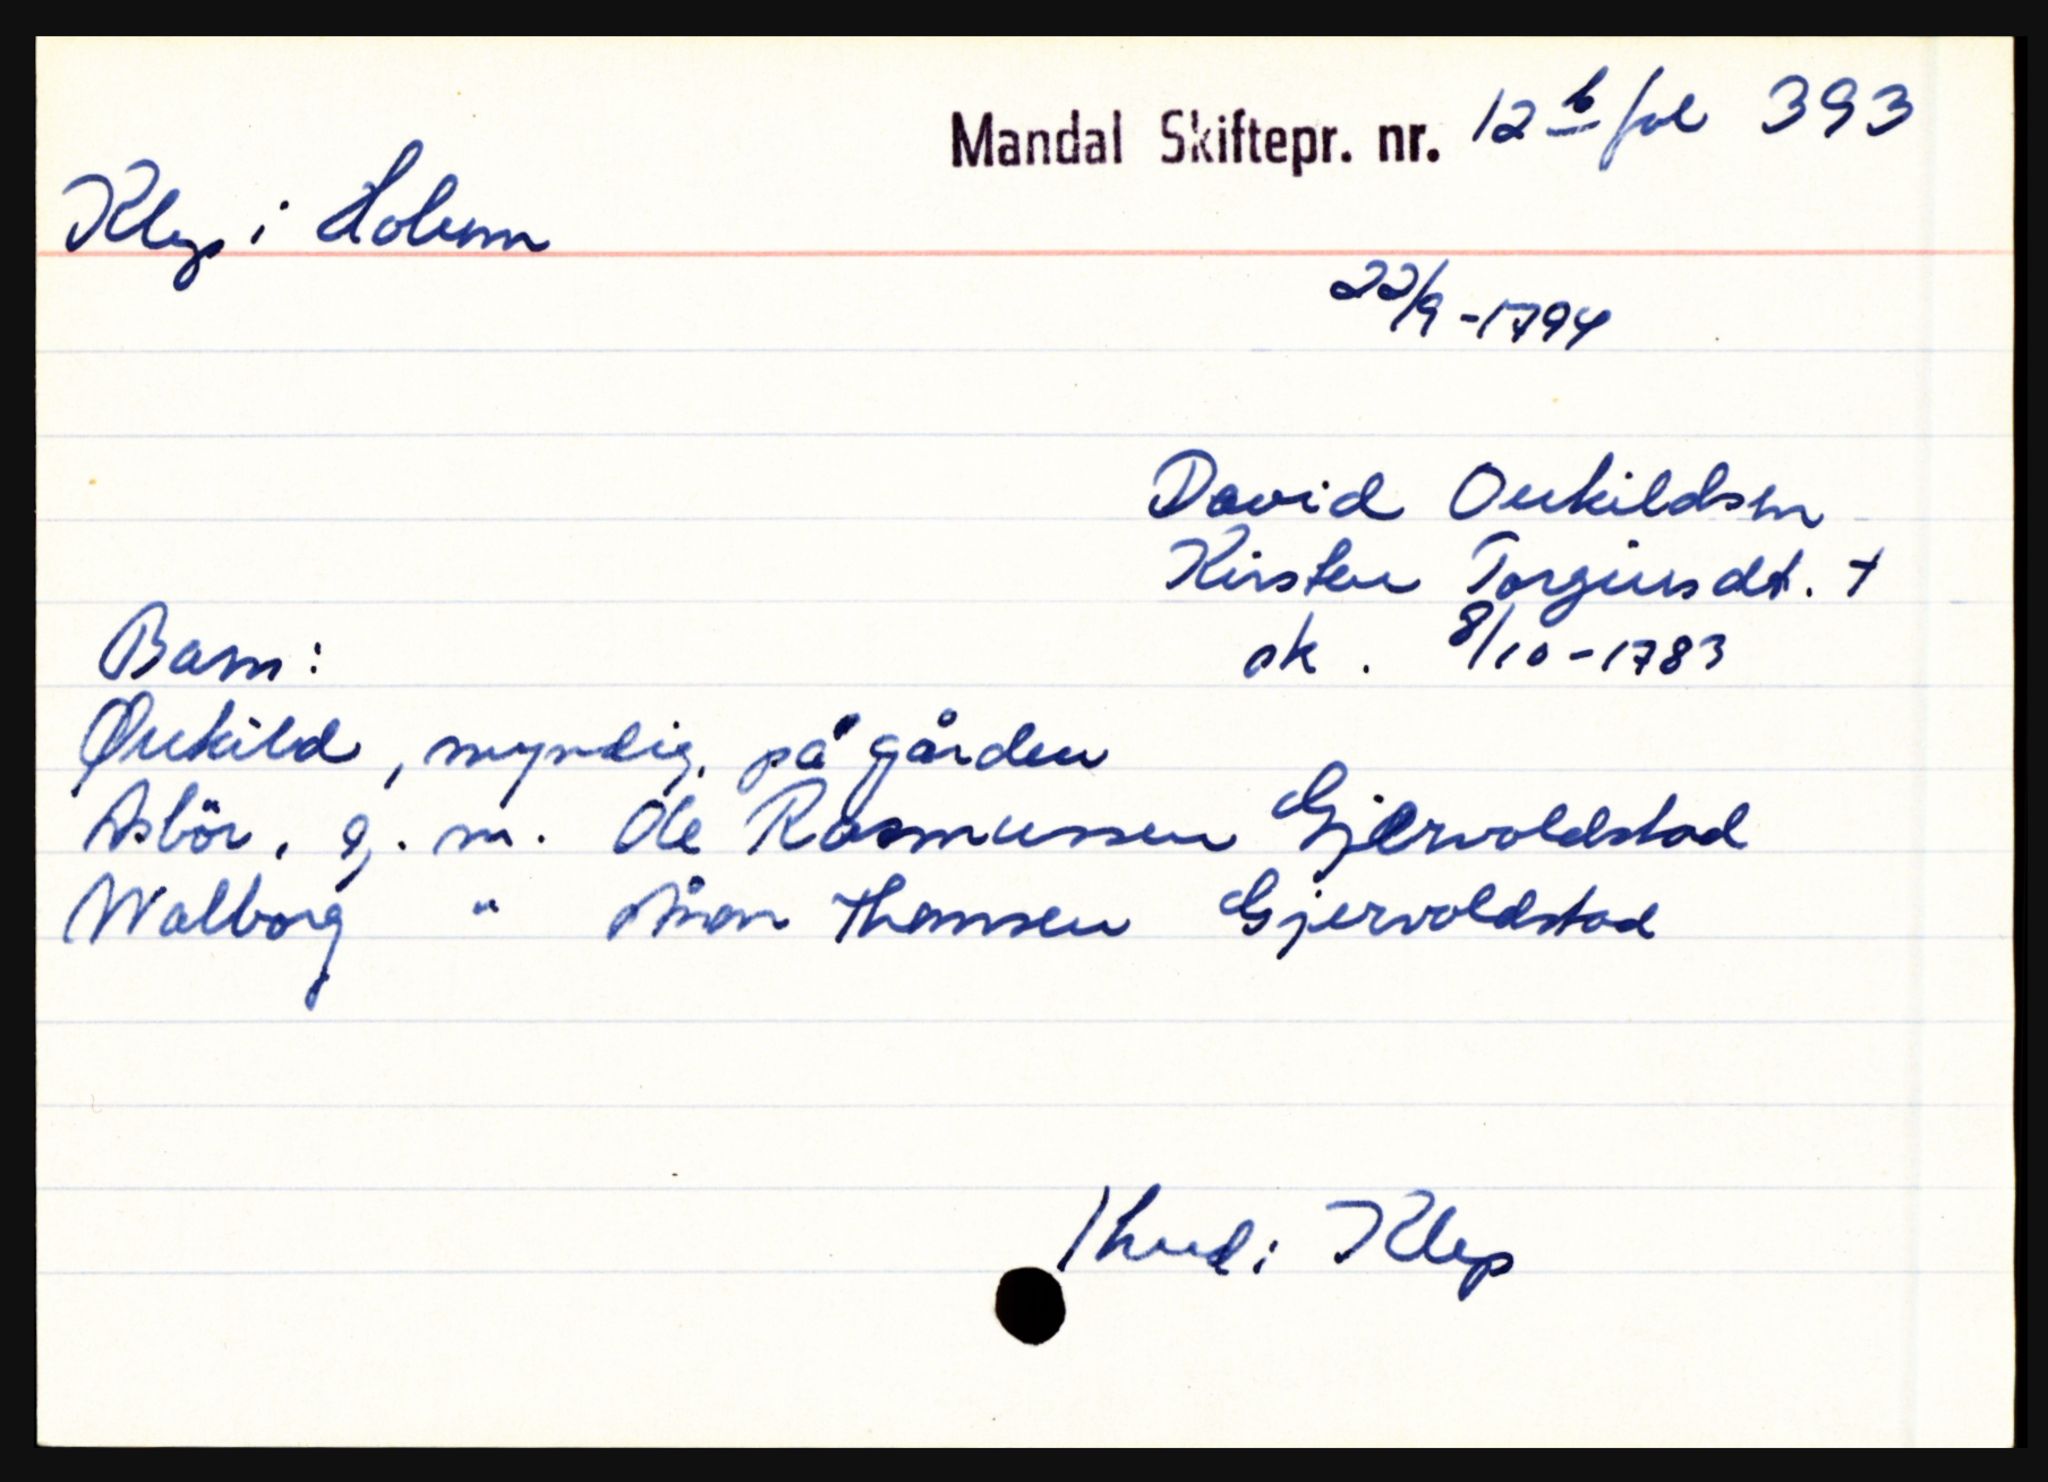 Mandal Skiftepr. nr. 12 b fol 393
Klep i Holum
22/9-1794
David Ourkildsen
Kirsten Torgiersdt. +
sk. 8/10-1783
Barn:
Ørkild, myndig, på gården
Asbör, g. m. Ole Rasmussen Gjervoldstad
Walborg " Simon Thomsen Gjervoldstad
Klep